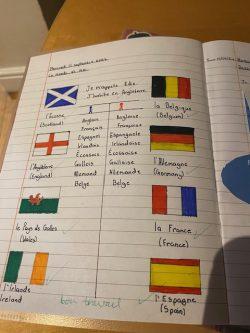 Mercredi 11 septembre
Le monde de
Je m'appelle
J'habite en Angleterre
l'Écosse
(Scotland)
la Belgique
(Belgium)
Anglais Anglaise
Français Française
Espagnol Espagnole
Irlandais Irlandaise
Écossais Écossaise
Gallois Galloise
Allemand Allemande
Belge Belge
l'Angleterre
(England)
l'Allemagne
(Germany)
le Pays de Galles
(Wales)
la France
(France)
l'Irlande
Ireland
bon travail
l'Espagne
(Spain)